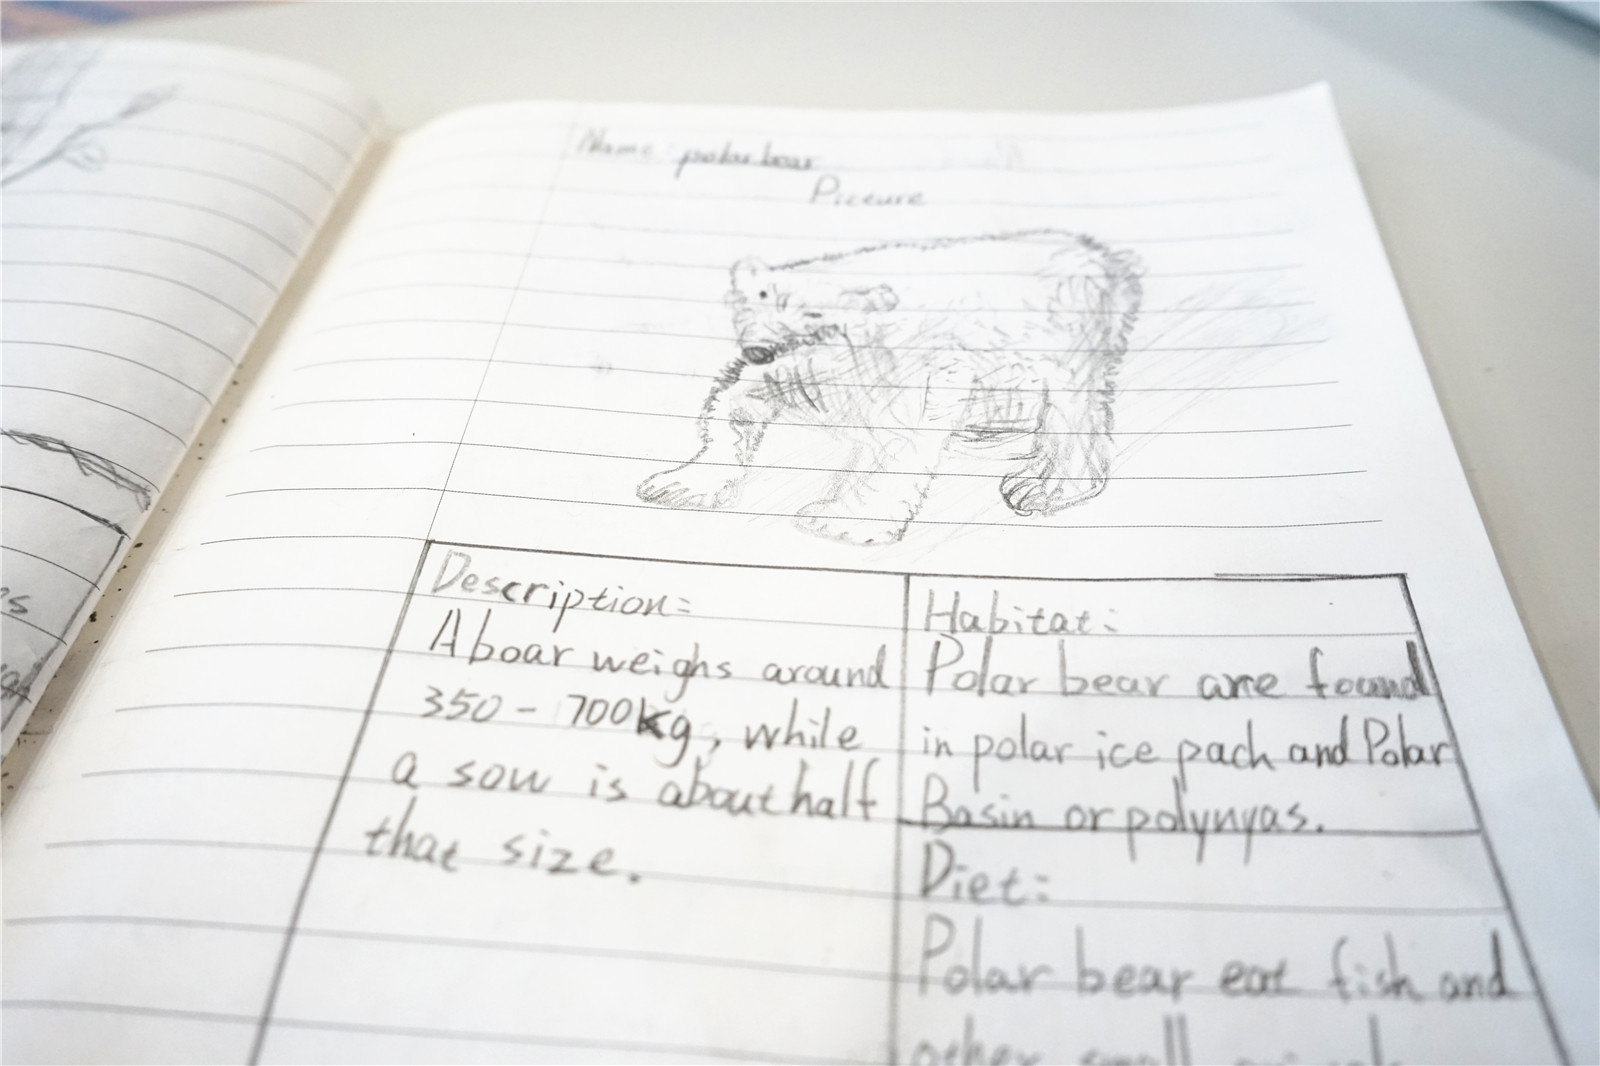 Name: polar bear
Piceure
Description:
A boar weighs around
350 - 700kg, while
a sow is about half
that size.
Habitat:
Polar bear are found
in polar ice pach and Polar
Basin or polynyas.
Diet:
Polar bear eat fish and
other small